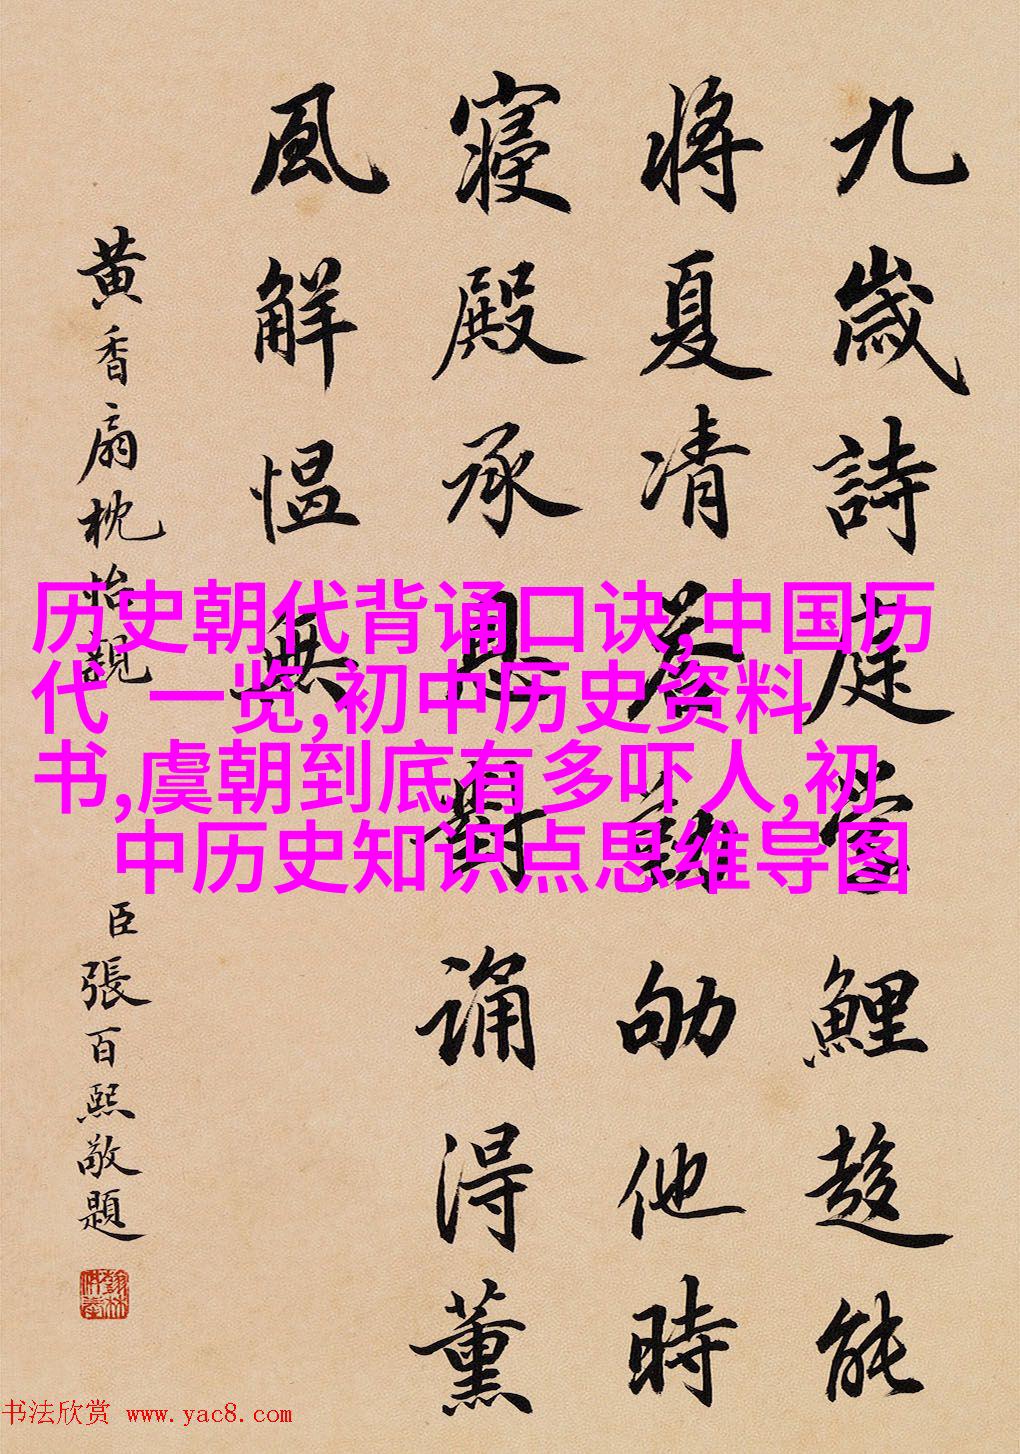 九歲詩庭嘗鯉趍能
將夏凊養劾他時
寝殿承恩誦得薰
風解愠無
黄香扇枕怡親
臣張百熙敬題
历史朝代背诵口诀,中国历
代 一览,初中历史资料
书,虞朝到底有多吓人,初
中历史知识点思维导图
书法欣赏 www.yac8.com